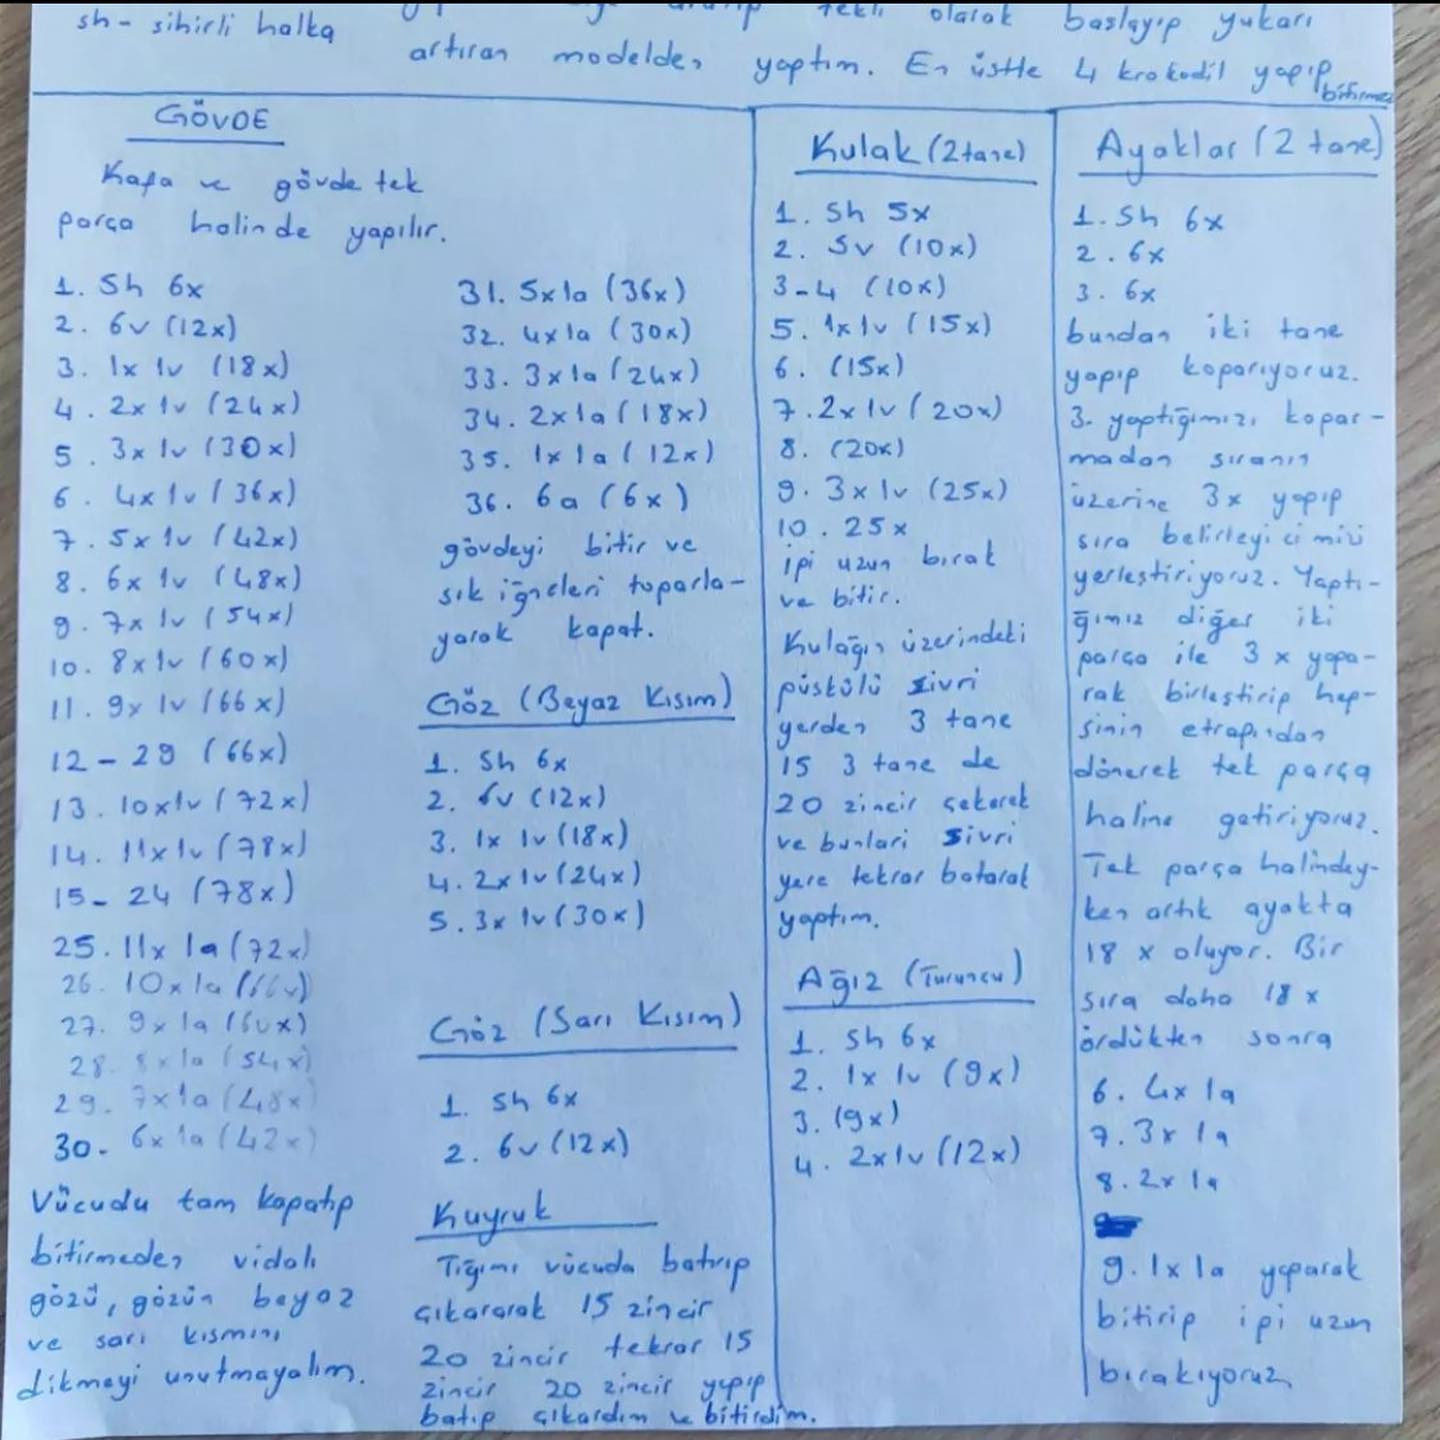 sh - sihirli halka
tekli olarak başlayıp yukarı
artıran modelden yaptım. En üstte 4 krokodil yapıp
bitirmez
GÖVDE
Kafa ve gövde tek
parça halinde yapılır.
1. Sh 6x
2. 6v (12x)
3. 1x 1v (18x)
4. 2x 1v (24x)
5. 3x 1v (30x)
6. 4x 1v (36x)
7. 5x 1v (42x)
8. 6x 1v (48x)
9. 7x 1v (54x)
10. 8x 1v (60x)
11. 9x 1v (66x)
12 - 29 (66x)
13. 10x1v (72x)
14. 11x1v (78x)
15 - 24 (78x)
25. 11x 1a (72x)
26. 10x 1a (66x)
27. 9x 1a (60x)
28. 8x 1a (54x)
29. 7x 1a (48x)
30. 6x 1a (42x)
Vücudu tam kapatıp
bitirmeden vidalı
gözü, gözün beyaz
ve sarı kısmını
dikmeyi unutmayalım.
31. 5x1a (36x)
32. 4x1a (30x)
33. 3x1a (24x)
34. 2x1a (18x)
35. 1x1a (12x)
36. 6a (6x)
gövdeyi bitir ve
sık iğneleri toparla-
yarak kapat.
Göz (Beyaz Kısım)
1. Sh 6x
2. 6v (12x)
3. 1x 1v (18x)
4. 2x1v (24x)
5. 3x 1v (30x)
Göz (Sarı Kısım)
1. Sh 6x
2. 6v (12x)
Kuyruk
Tığımı vücuda batırıp
çıkararak 15 zincir
20 zincir tekrar 15
zincir 20 zincir yapıp
batıp çıkardım ve bitirdim.
Kulak (2 tane)
1. Sh 5x
2. 5v (10x)
3-4 (10x)
5. 1x 1v (15x)
6. (15x)
7. 2x 1v (20x)
8. (20x)
9. 3x 1v (25x)
10. 25x
ipi uzun bırak
ve bitir.
Kulağın üzerindeki
püskülü sivri
yerden 3 tane
15 3 tane de
20 zincir çekerek
ve bunları sivri
yere tekrar batarak
yaptım.
Ağız (Turuncu)
1. Sh 6x
2. 1x 1v (9x)
3. (9x)
4. 2x1v (12x)
Ayaklar (2 tane)
1. Sh 6x
2. 6x
3. 6x
bundan iki tane
yapıp koparıyoruz.
3. yaptığımızı kopar-
madan sıranın
üzerine 3x yapıp
sıra belirleyicimizi
yerleştiriyoruz. Yaptı-
ğımız diğer iki
parça ile 3 x yapa-
rak birleştirip hep-
sinin etrafından
dönerek tek parça
haline getiriyoruz.
Tek parça halindey-
ken artık ayakta
18 x oluyor. Bir
sıra daha 18 x
ördükten sonra
6. 4x 1a
7. 3x 1a
8. 2x 1a
9. 1x 1a yaparak
bitirip ipi uzun
bırakıyoruz